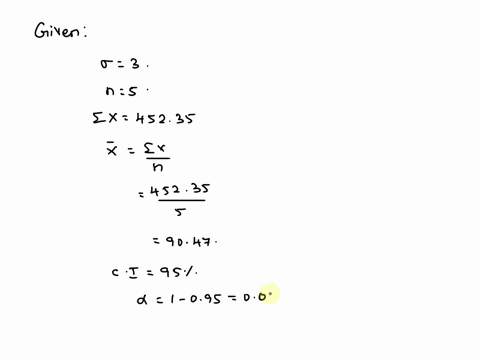 Given:
σ = 3.
n = 5.
Σx = 452.35
x̄ = Σx/n
= 452.35/5
= 90.47.
C.I = 95%.
α = 1 - 0.95 = 0.0